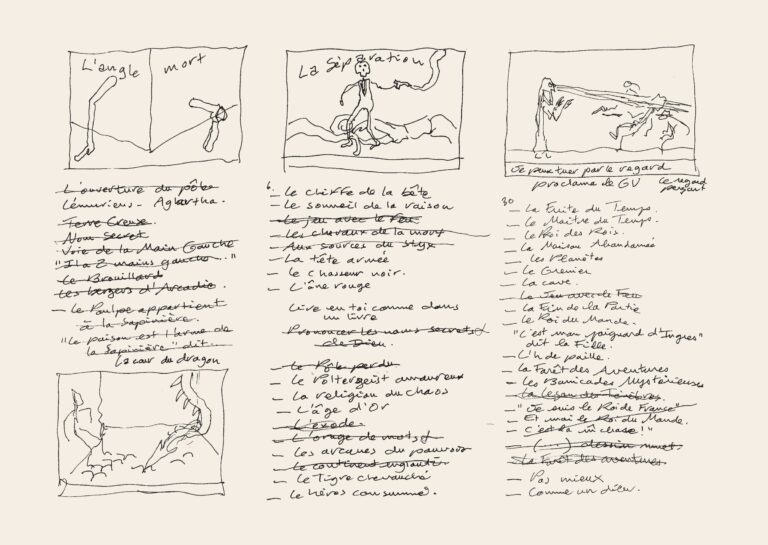 L'angle mort
L'ouverture du pôle
Lémuriens - Aghartha.
Terre Creuse.
Nom Secret
Voie de la Main Gauche
"Il a 2 mains gauche..."
Le Brouillard
Les bergers d'Arcadie.
— Le Poulpe appartient
à la Sapinière.
"Le poison est l'arme de
la Sapinière" dit
La cour du dragon
La Séparation
6.
— Le chiffre de la bête
— Le sommeil de la raison
— Le jeu avec le feu
— Les chevaux de la mort
— Aux sources du Styx
— La tête armée
— le chasseur noir.
— L'âne rouge
Lire en toi comme dans
un livre
Prononcer les noms secrets
de Dieu.
— Le Pôle perdu
— Le Poltergeist amoureux
— La religion du chaos
— L'âge d'Or
— L'exode.
— L'orage de mots
— Les arcanes du pouvoir
— Le continent englouti
— Le Tigre chevauché
— Le héros consumé.
Je peux tuer par le regard
proclama le GV
Le regard
perçant
30
— La Fuite du Temps.
— Le Maître du Temps.
— Le Roi des Rois.
— La Maison Abandonnée
— Les Planètes
— Le Grenier
— La cave.
— Le Jeu avec le Feu
— La Fin de la Partie
— Le Roi du Monde.
"C'est mon poignard d'Ingres"
dit la Fille.
— L'h de paille.
— La Forêt des Aventures
— Les Barricades Mystérieuses
— La Leçon des Ténèbres
— "Je suis le Roi de France"
— Et moi le Roi du Monde.
— C'est la m̂ chose!"
— (...) dessin muet.
— La Forêt des aventures
— Pas mieux
— Comme un dieu.